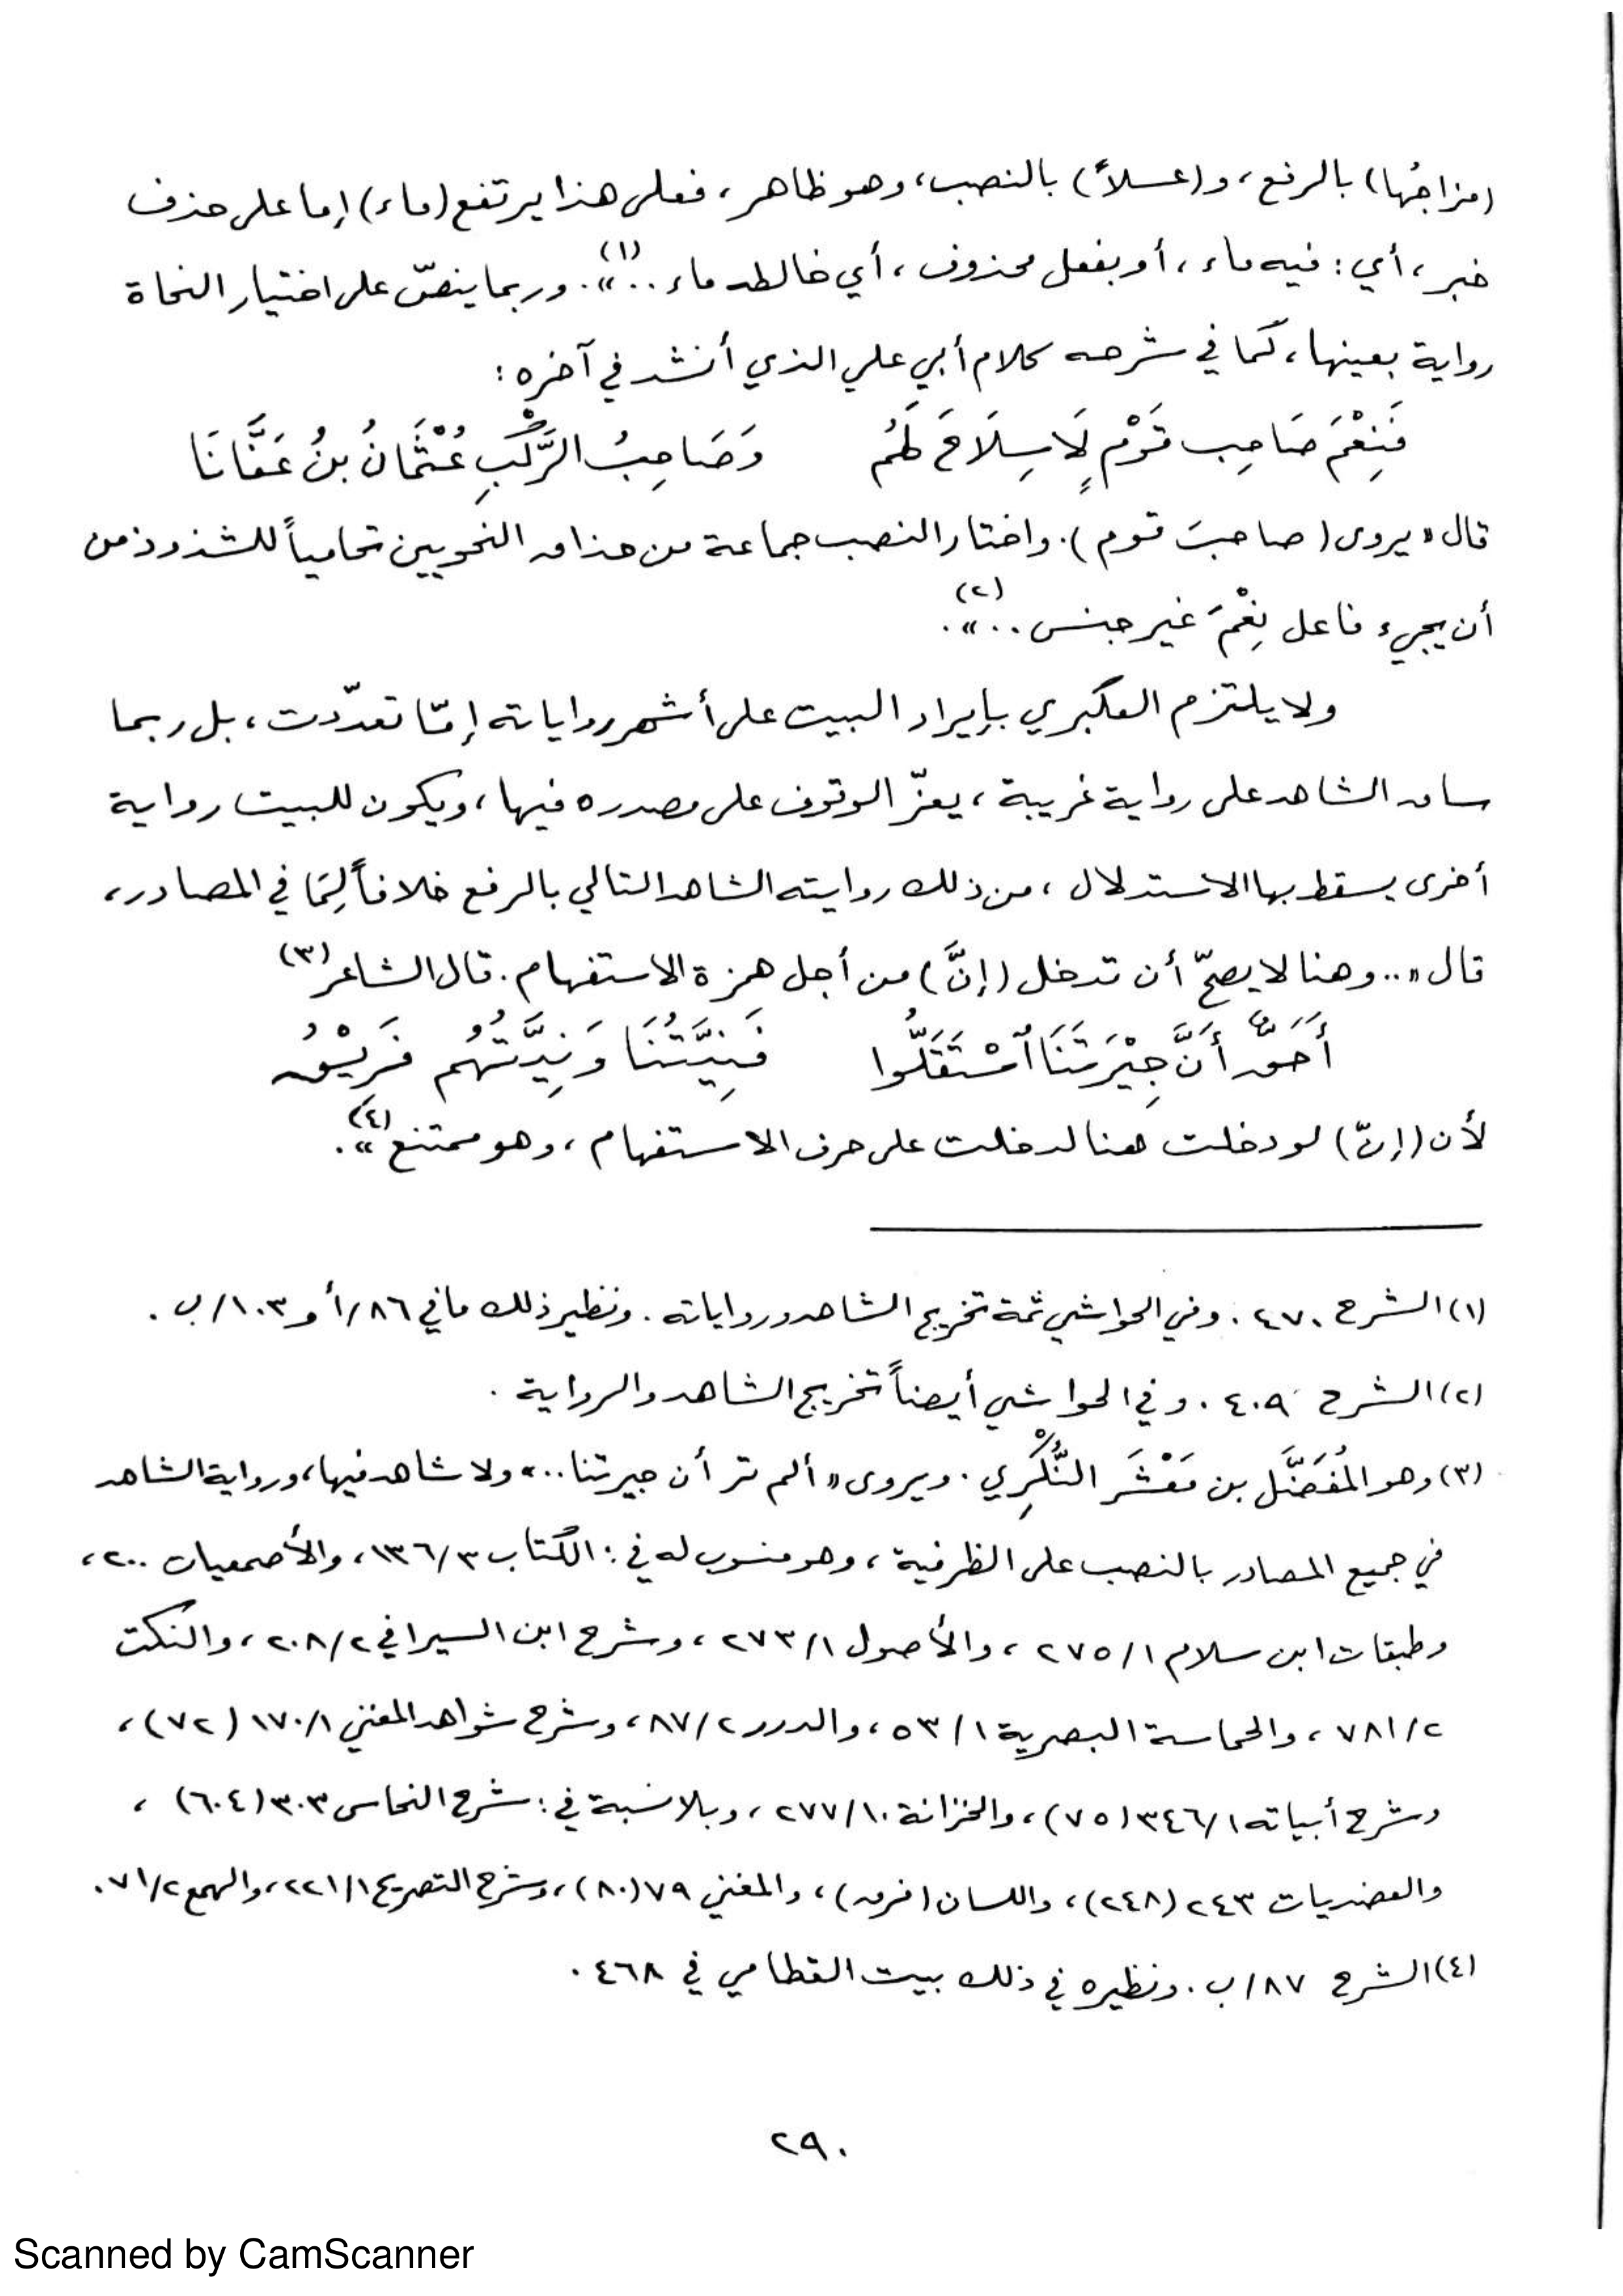 (مزاجُها) بالرفع، و(عسلاً) بالنصب، وهو ظاهر، فعلى هذا يرتفع (ماء) إما على حذف
خبر، أي: فيه ماء، أو بفعل محذوف، أي خالطه ماء..»(١). وربما ينصّ على اختيار النحاة
رواية بعينها، كما في شرحه كلام أبي علي الذي أنشد في آخره:
فَنِعْمَ صَاحِب قَوْمٍ لَا سِلَاحَ لَهُم وَصَاحِبُ الرَّكْبِ عُثْمَانُ بنُ عَفَّانَا
قال «يروى (صاحبَ قوم). واختار النصب جماعة من حذاق النحويين تحامياً للشذوذ من
أن يجيء فاعل نِعْمَ غير جنس..»(٢).
ولا يلتزم العكبري بإيراد البيت على أشهر رواياته إمّا تعدّدت، بل ربما
ساق الشاهد على رواية غريبة، يعزّ الوقوف على مصدره فيها، ويكون للبيت رواية
أخرى يسقط بها الاستدلال، من ذلك روايته الشاهد التالي بالرفع خلافاً لِمَا في المصادر،
قال «.. وهنا لا يصحّ أن تدخل (إنَّ) من أجل همزة الاستفهام. قال الشاعر(٣)
أَحَقٌّ أَنَّ جِيْرَتَنَا ٱسْتَقَلُّوا فَنِيَّتُنَا وَنِيَّتُهُم فَرِيْقُ
لأن (إنّ) لو دخلت هنا لدخلت على حرف الاستفهام، وهو ممتنع»(٤).
(١) الشرح ٤٧٠. وفي الحواشي ثمة تخريج الشاهد ورواياته. ونظير ذلك ما في ٨٦/أ و ١٠٣/ب.
(٢) الشرح ٤٠٩. وفي الحواشي أيضاً تخريج الشاهد والرواية.
(٣) وهو المُفَضَّل بن مَعْشَر النُّكْرِي. ويروى «ألم تر أن جيرتنا..» ولا شاهد فيها، ورواية الشاهد
في جميع المصادر بالنصب على الظرفية، وهو منسوب له في: الكتاب ١٣٦/٣، والأصمعيات ٢٠٠،
وطبقات ابن سلام ٢٧٥/١، والأصول ٢٧٣/١، وشرح ابن السيرافي ٢٠٨/٢، والنكت
٧٨١/٢، والحماسة البصرية ٥٣/١، والدرر ٨٧/٢، وشرح شواهد المغني ١٧٠/١ (٧٢)،
وشرح أبياته ٣٤٦/١ (٧٥)، والخزانة ٢٧٧/١٠، وبلا نسبة في: شرح النحاس ٣٠٣ (٦٠٤)،
والعضديات ٢٤٣ (٢٤٨)، واللسان (فرق)، والمغني ٧٩ (٨٠)، وشرح التصريح ٢٢١/١، والهمع ٧١/٢.
(٤) الشرح ٨٧/ب. ونظيره في ذلك بيت القطامي في ٤٦٨.
٢٩٠
Scanned by CamScanner